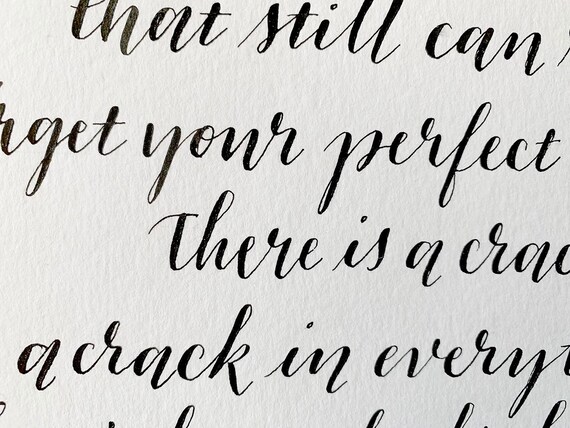 that still can
rget your perfect
There is a crac
a crack in everyt